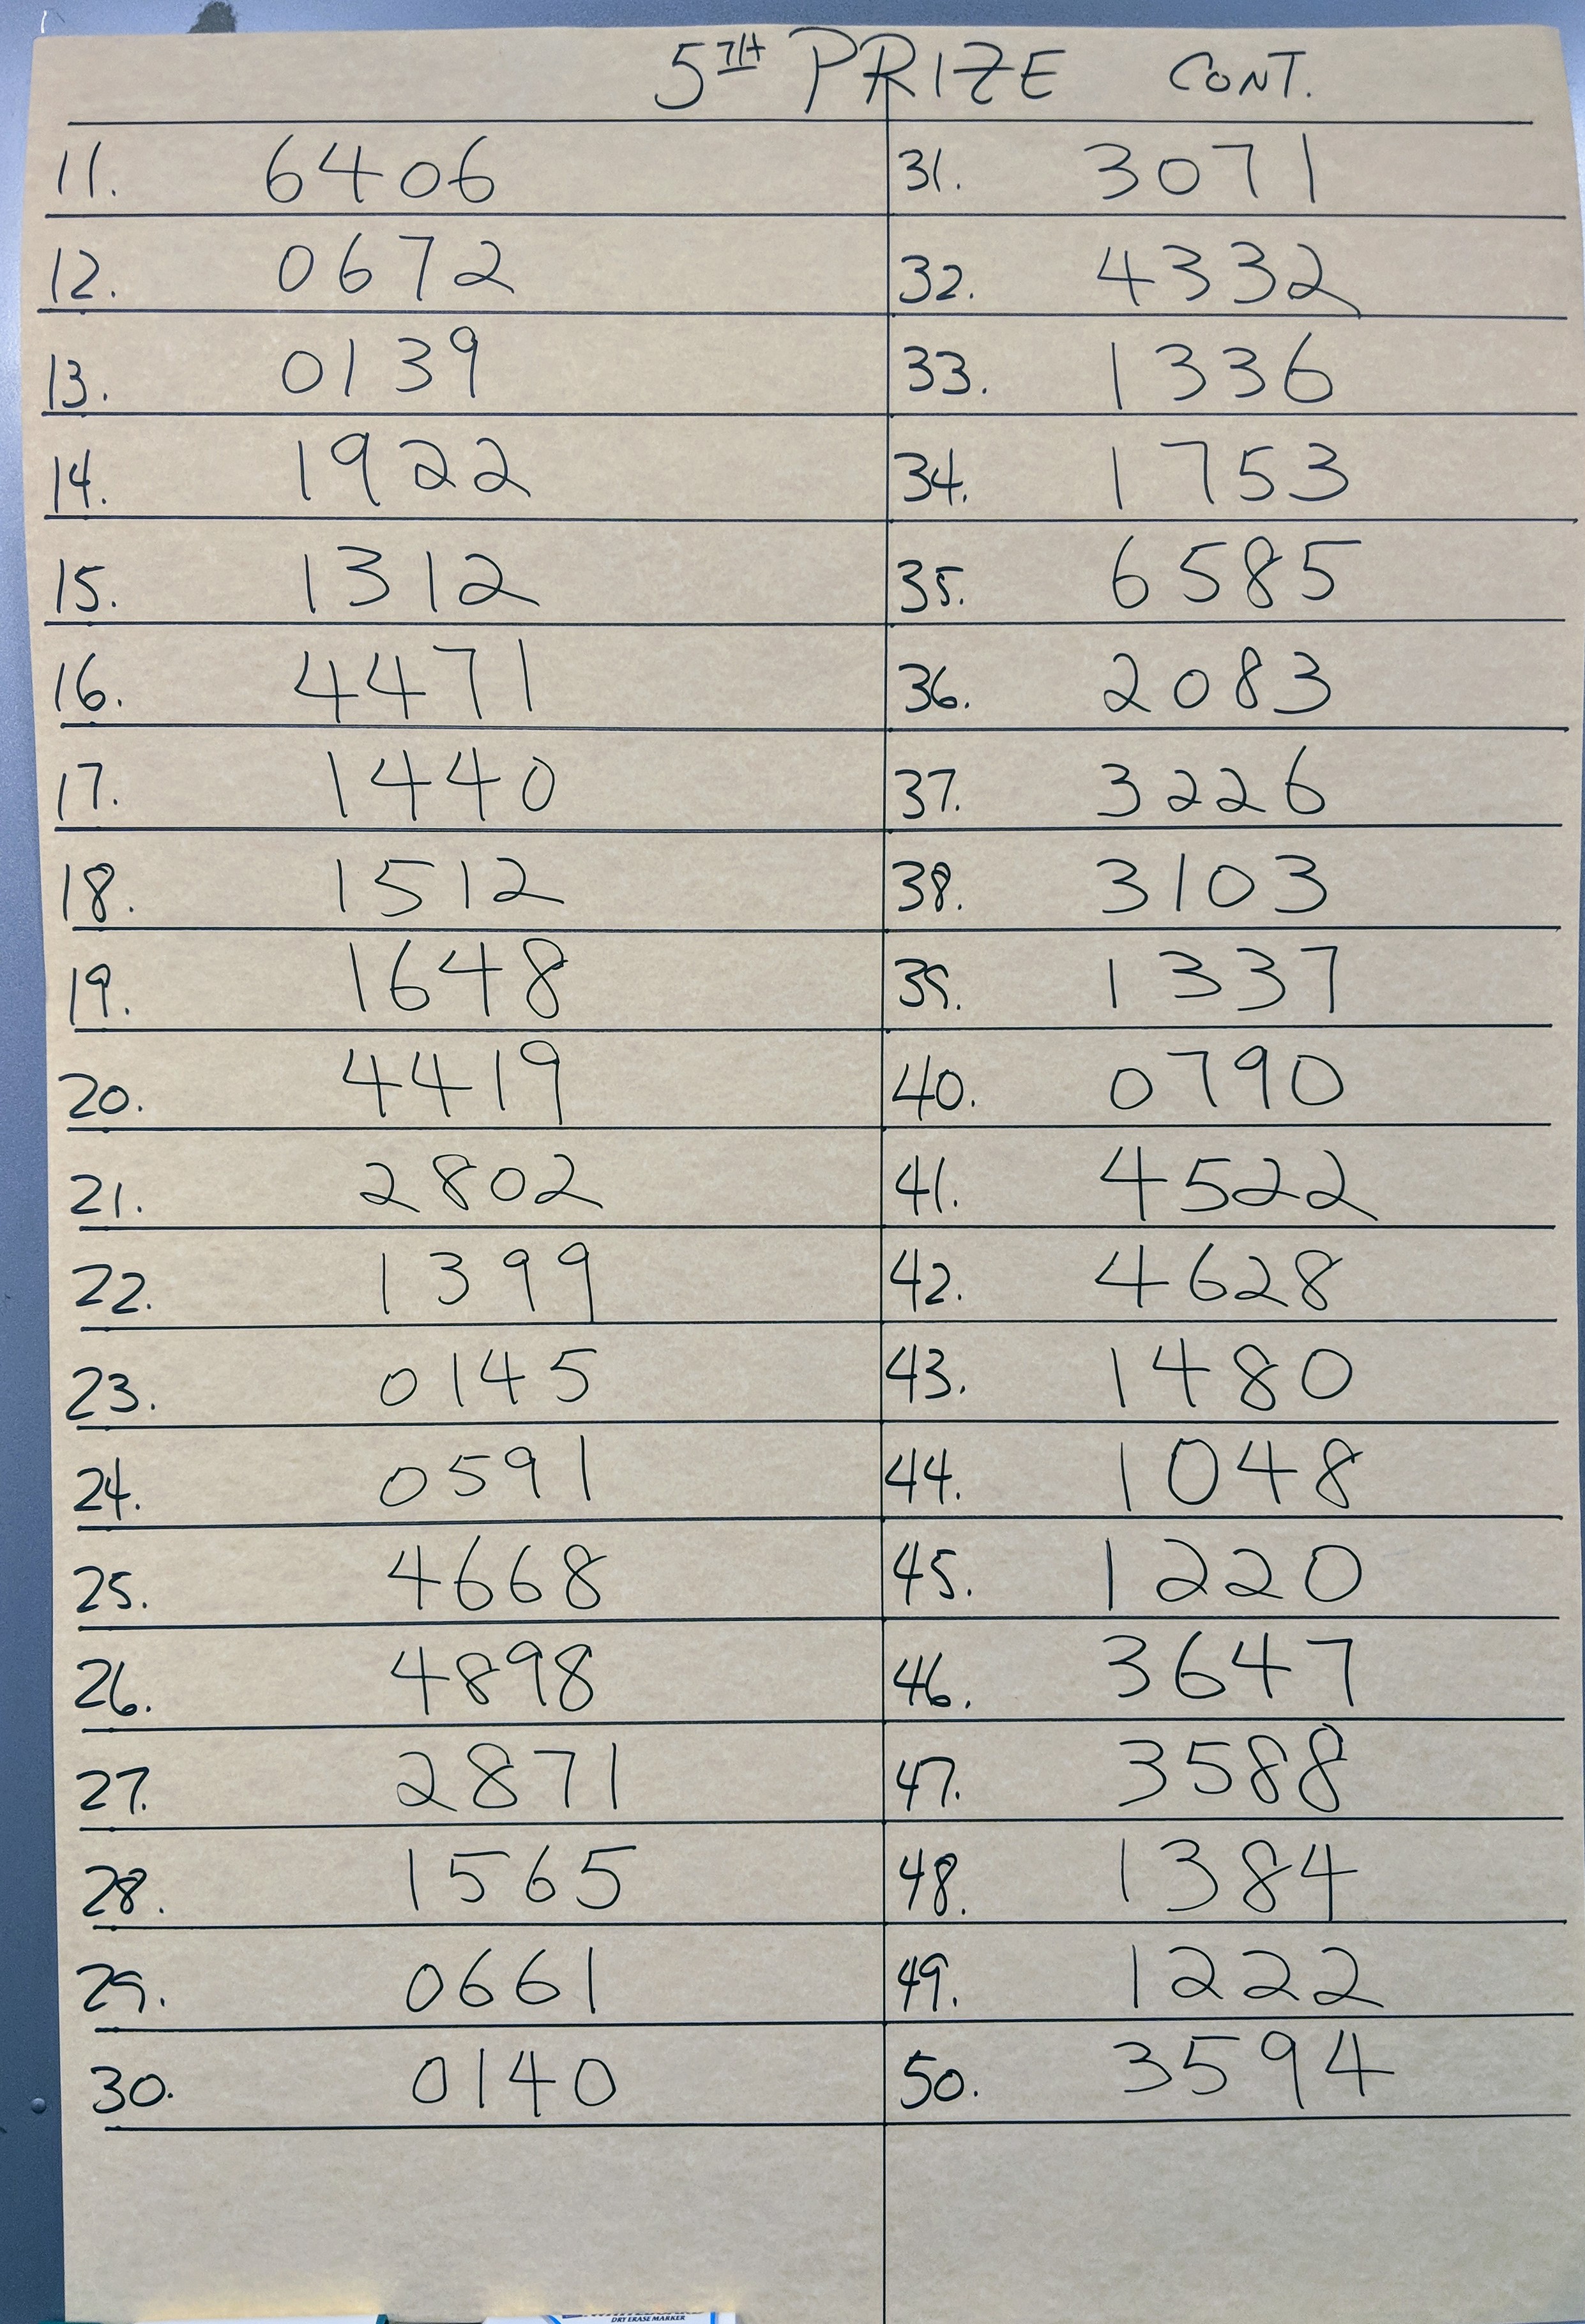 5TH PRIZE CONT.
11. 6406
12. 0672
13. 0139
14. 1922
15. 1312
16. 4471
17. 1440
18. 1512
19. 1648
20. 4419
21. 2802
22. 1399
23. 0145
24. 0591
25. 4668
26. 4898
27. 2871
28. 1565
29. 0661
30. 0140
31. 3071
32. 4332
33. 1336
34. 1753
35. 6585
36. 2083
37. 3226
38. 3103
39. 1337
40. 0790
41. 4522
42. 4628
43. 1480
44. 1048
45. 1220
46. 3647
47. 3588
48. 1384
49. 1222
50. 3594
DRY ERASE MARKER